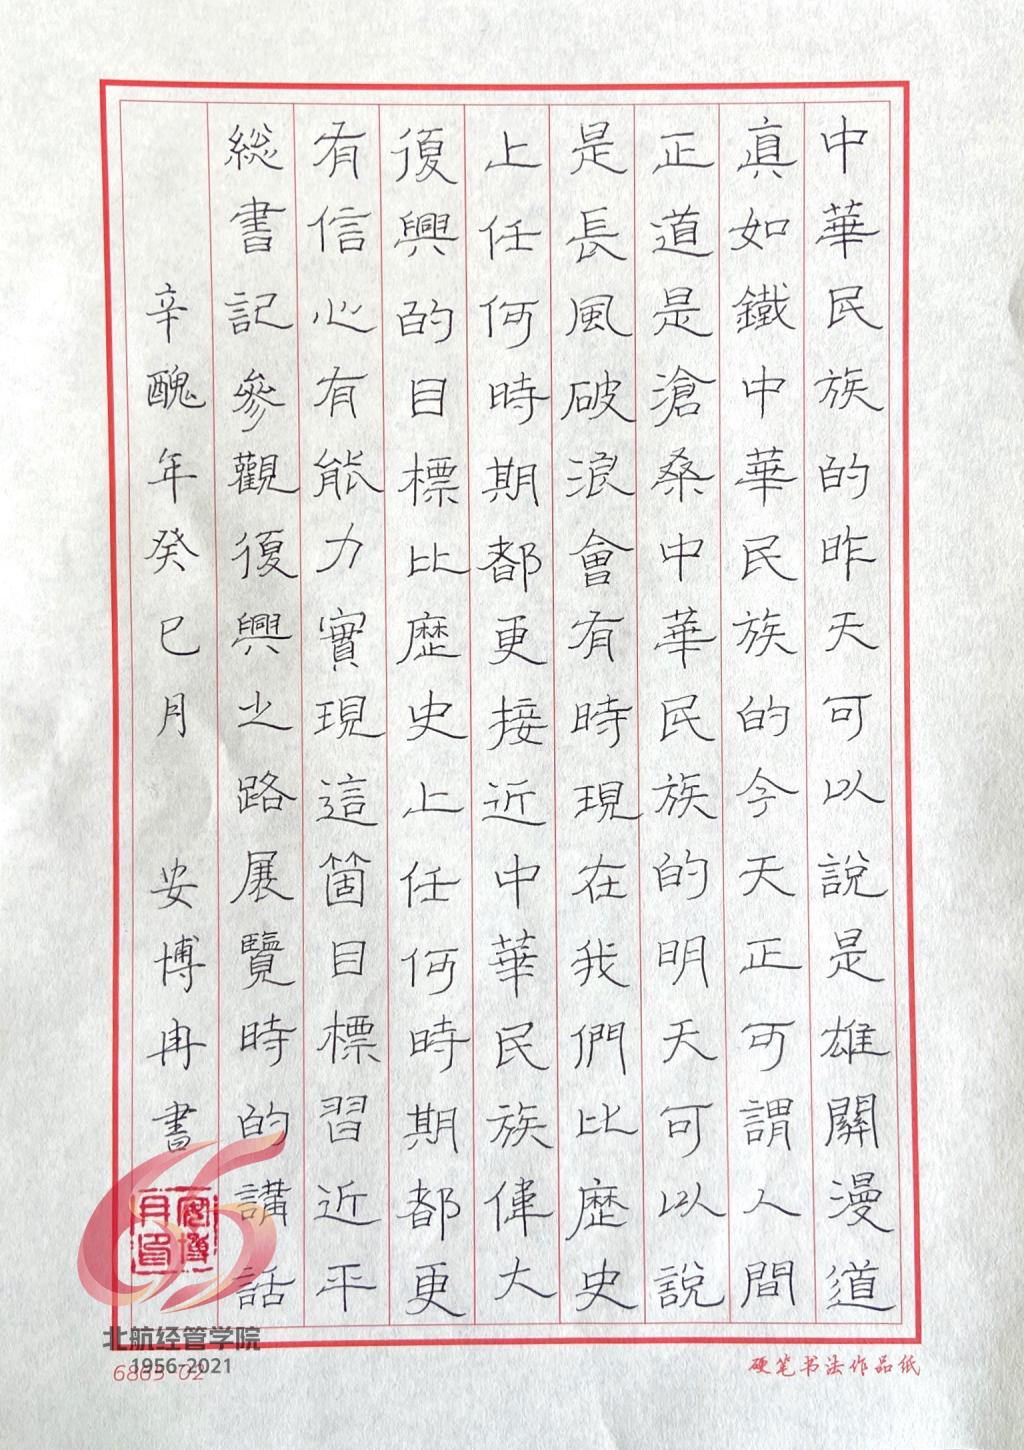 中華民族的昨天可以說是雄關漫道
真如鐵中華民族的今天正可謂人間
正道是滄桑中華民族的明天可以說
是長風破浪會有時現在我們比歷史
上任何時期都更接近中華民族偉大
復興的目標比歷史上任何時期都更
有信心有能力實現這箇目標習近平
総書記參觀復興之路展覽時的講話
辛醜年癸巳月 安博冉書
安博冉印
北航经管学院
1956-2021
6885-02
硬笔书法作品纸